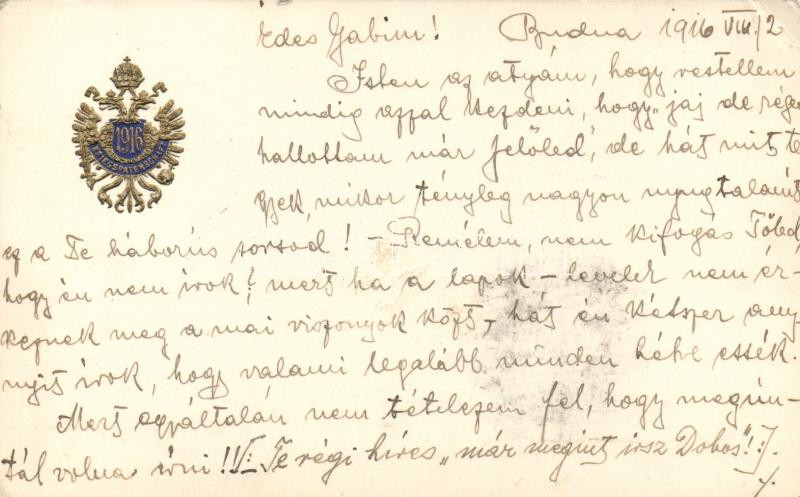 Edes Gabim! Budua 1916 VIII/2
Isten az atyám, hogy restellem
mindig azzal kezdeni, hogy „jaj de rége
hallottam már felőled", de hát mit te
gyek, mikor tényleg nagyon nyugtalanít
ez a Te háborús sorsod! - Remélem, nem kifogás Tőled,
hogy én nem írok? mert ha a lapok - levelek nem ér-
keznek meg a mai viszonyok közt, - hát én kétszer any-
nyit írok, hogy valami legalább minden hétre essék.
Mert egyáltalán nem tételezem fel, hogy megún-
tál volna írni!! /: Te régi híres „már megint irsz Dobos"! :/
1916
KRIEGSPATENSCHAFT